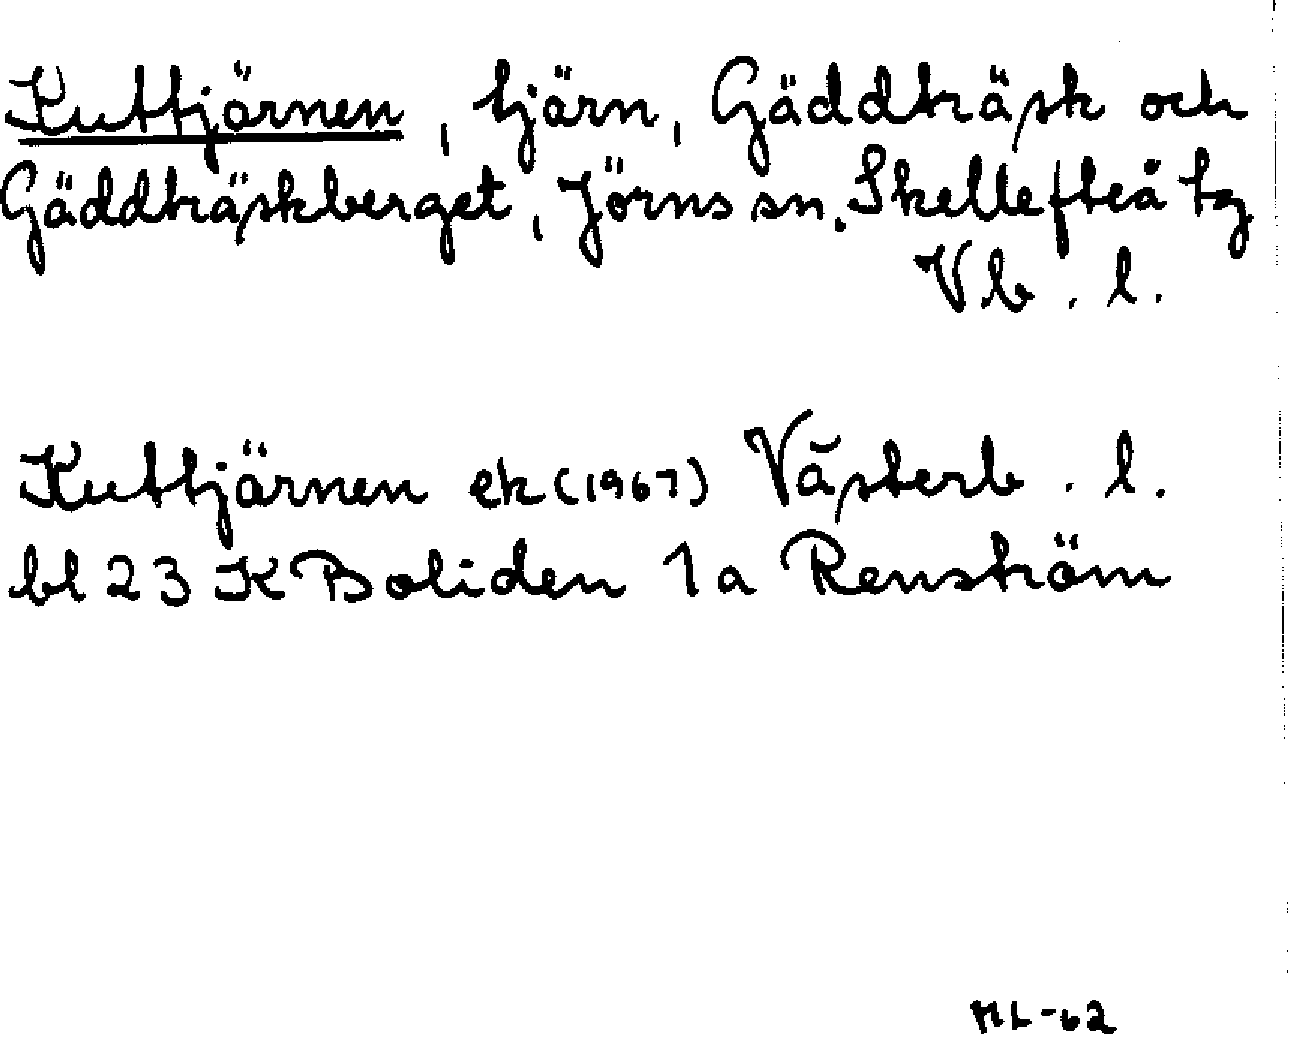 Kuttjärnen, tjärn, Gäddträsk och
Gäddträskberget, Jörns sn. Skellefteå tg
Vb. l.
Kuttjärnen ek (1967) Västerb. l.
bl 23 K Boliden 1a Renström
ML-62